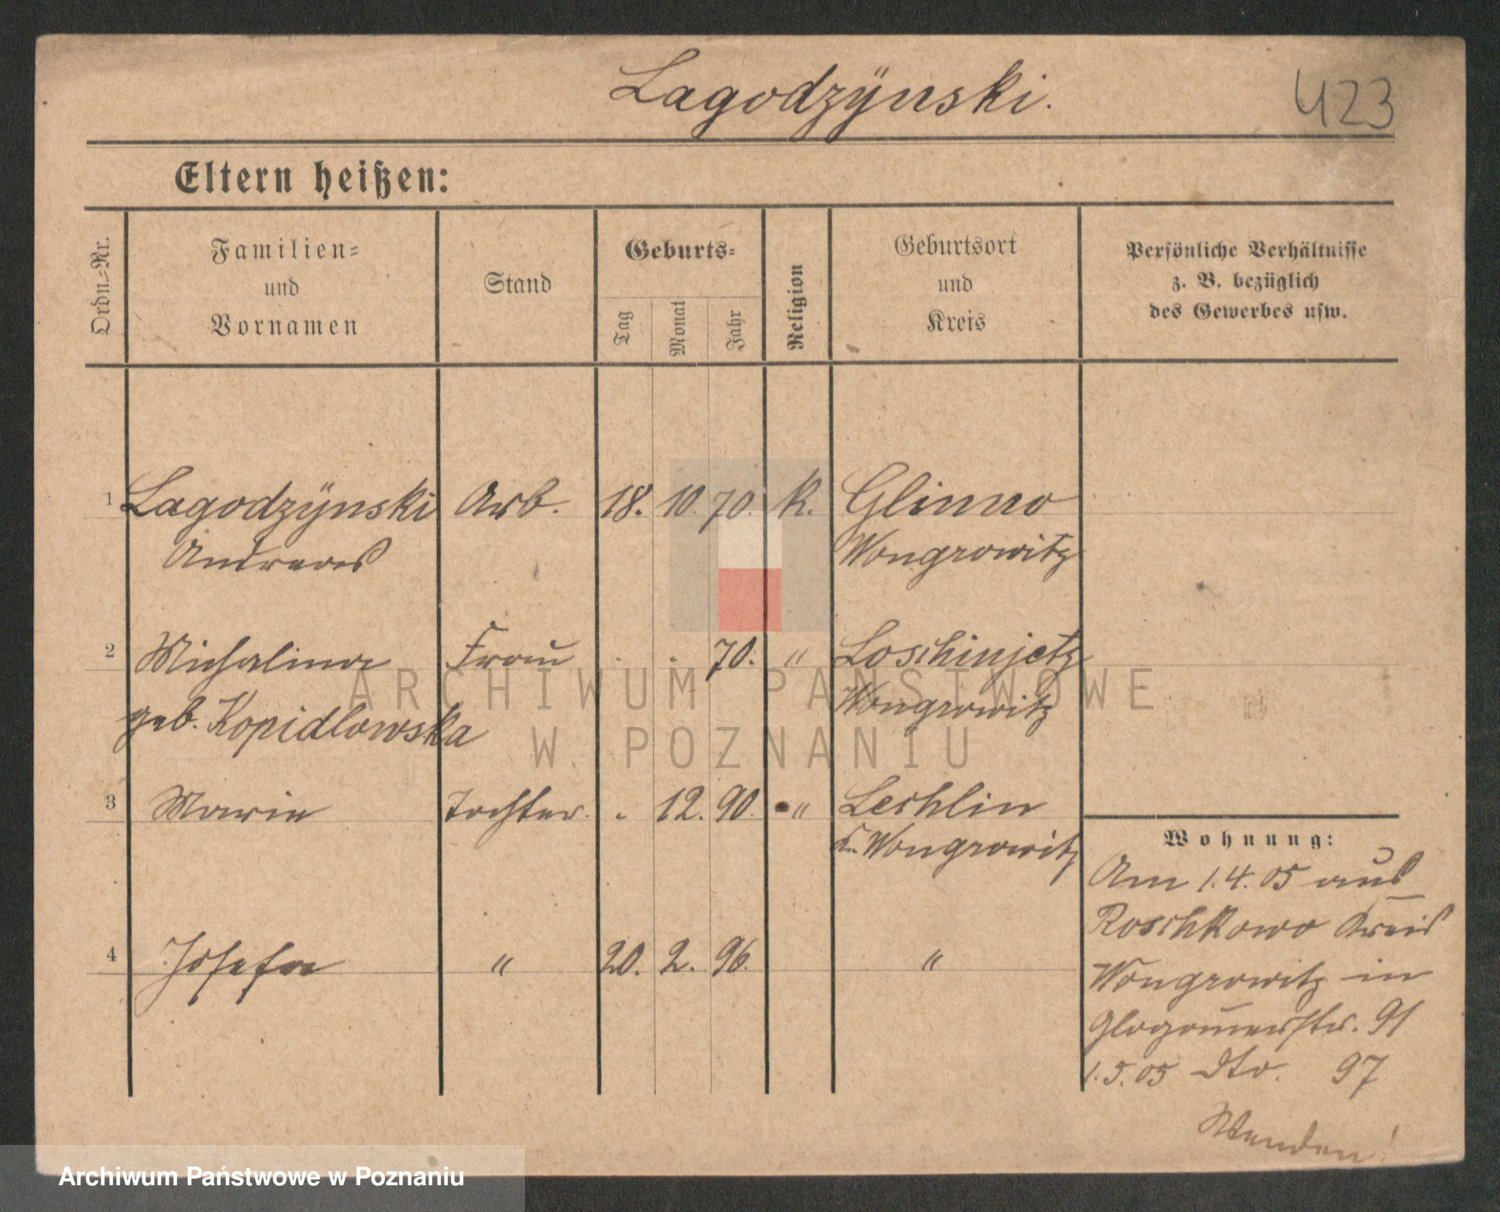 Lagodzÿnski.
423
Eltern heißen:
Ordn.-Nr.
Familien-
und
Vornamen
Stand
Geburts-
Tag
Monat
Jahr
Religion
Geburtsort
und
Kreis
Persönliche Verhältnisse
z. B. bezüglich
des Gewerbes usw.
1 Lagodzÿnski Arb. 18. 10. 70. K. Glinno
Andreas Wongrowitz
2 Michalina Frau . . 70. " Loschinjetz
geb. Kopidlowska Wongrowitz
3 Marie Tochter. . 12. 90. " Lechlin
Kr. Wongrowitz
4 Josefa " 20. 2. 96. "
Wohnung:
Am 1.4.05 aus
Roschkowo Kreis
Wongrowitz in
Glogauerstr. 91
1.5.05 dto. 97
Wenden!
ARCHIWUM PAŃSTWOWE
W POZNANIU
Archiwum Państwowe w Poznaniu